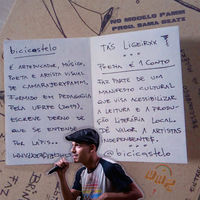 NO MODELO PAMM
PROD. BAMA BEATZ
bicicastelo
É ARTEDUCADOR, MÚSICO,
POETA E ARTISTA VISUAL
DE CAMARAJERY
FORMADO EM PEDAGOGIA
PELA UFRPE (2019),
ESCREVE DENTRO DE
QUE SE ENTENDE
POR LÁPIS...
TAS LIGEIRXX ?
POEMA É 1 CONTO
FAZ PARTE DE UM
MANIFESTO CULTURAL
QUE VISA ACESSIBILIZAR
A LEITURA E A PRODU-
ÇÃO LITERÁRIA LOCAL.
DÊ VALOR A ARTISTAS
INDEPENDENTES
@bicicastelo